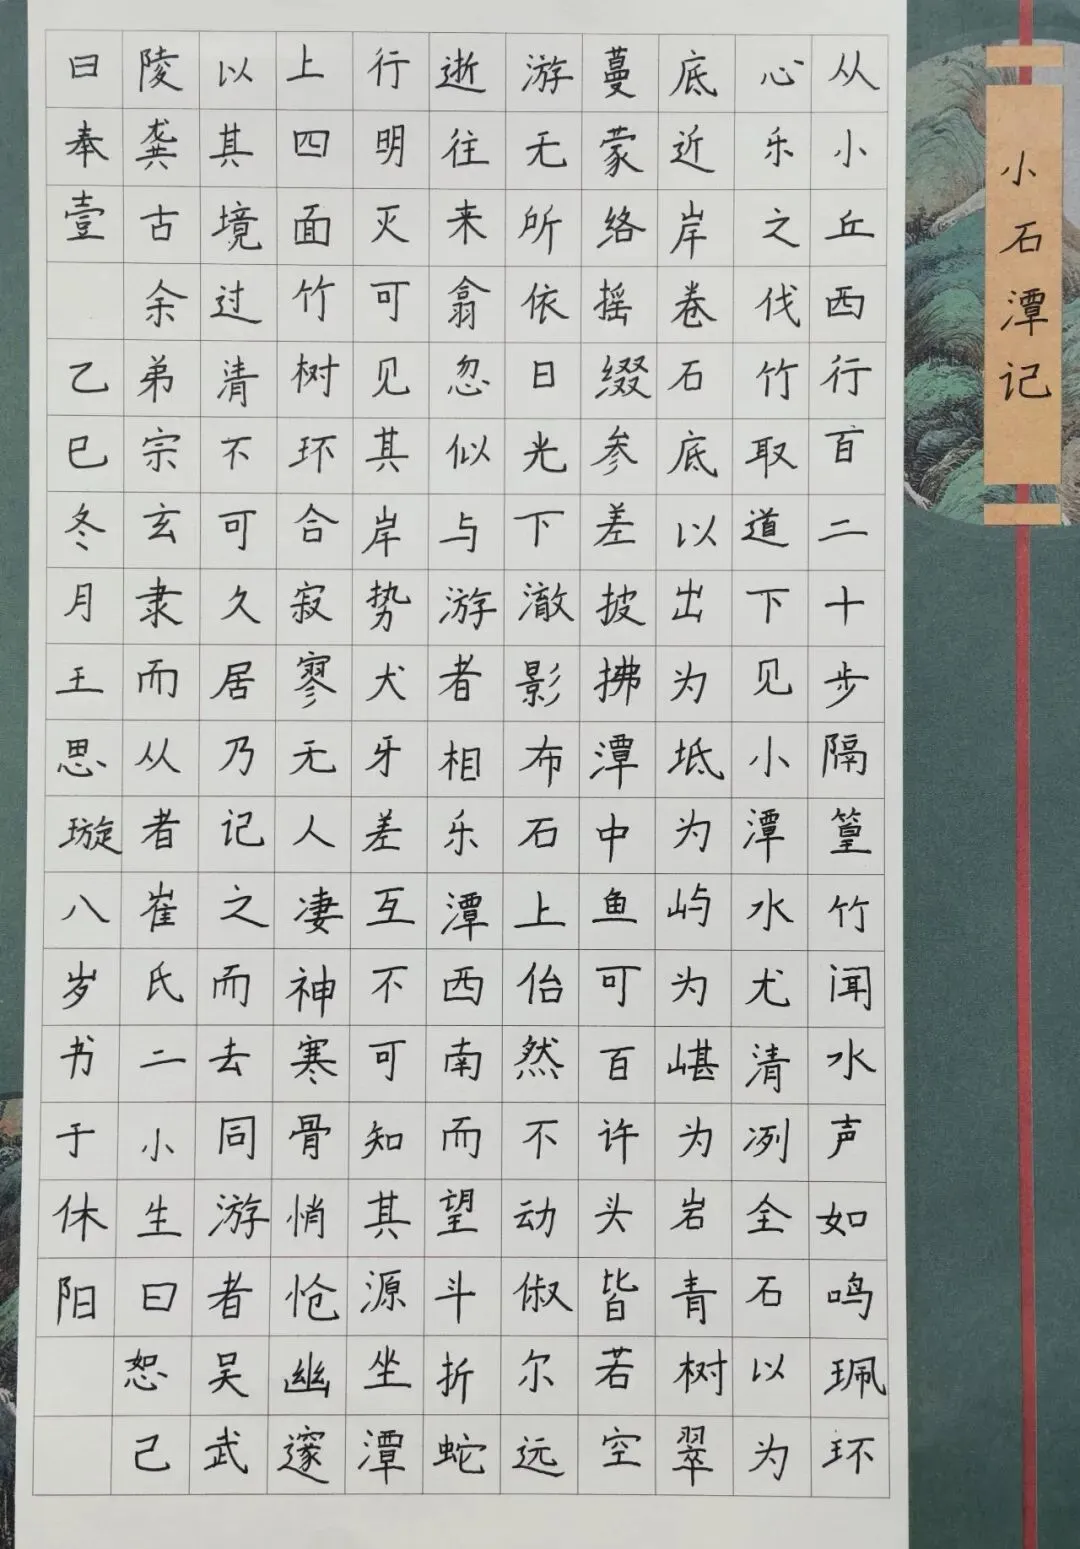 小石潭记
从小丘西行百二十步隔篁竹闻水声如鸣珮环
心乐之伐竹取道下见小潭水尤清冽全石以为
底近岸卷石底以出为坻为屿为嵁为岩青树翠
蔓蒙络摇缀参差披拂潭中鱼可百许头皆若空
游无所依日光下澈影布石上佁然不动俶尔远
逝往来翕忽似与游者相乐潭西南而望斗折蛇
行明灭可见其岸势犬牙差互不可知其源坐潭
上四面竹树环合寂寥无人凄神寒骨悄怆幽邃
以其境过清不可久居乃记之而去同游者吴武
陵龚古余弟宗玄隶而从者崔氏二小生曰恕己
曰奉壹 乙巳冬月王思璇八岁书于休阳